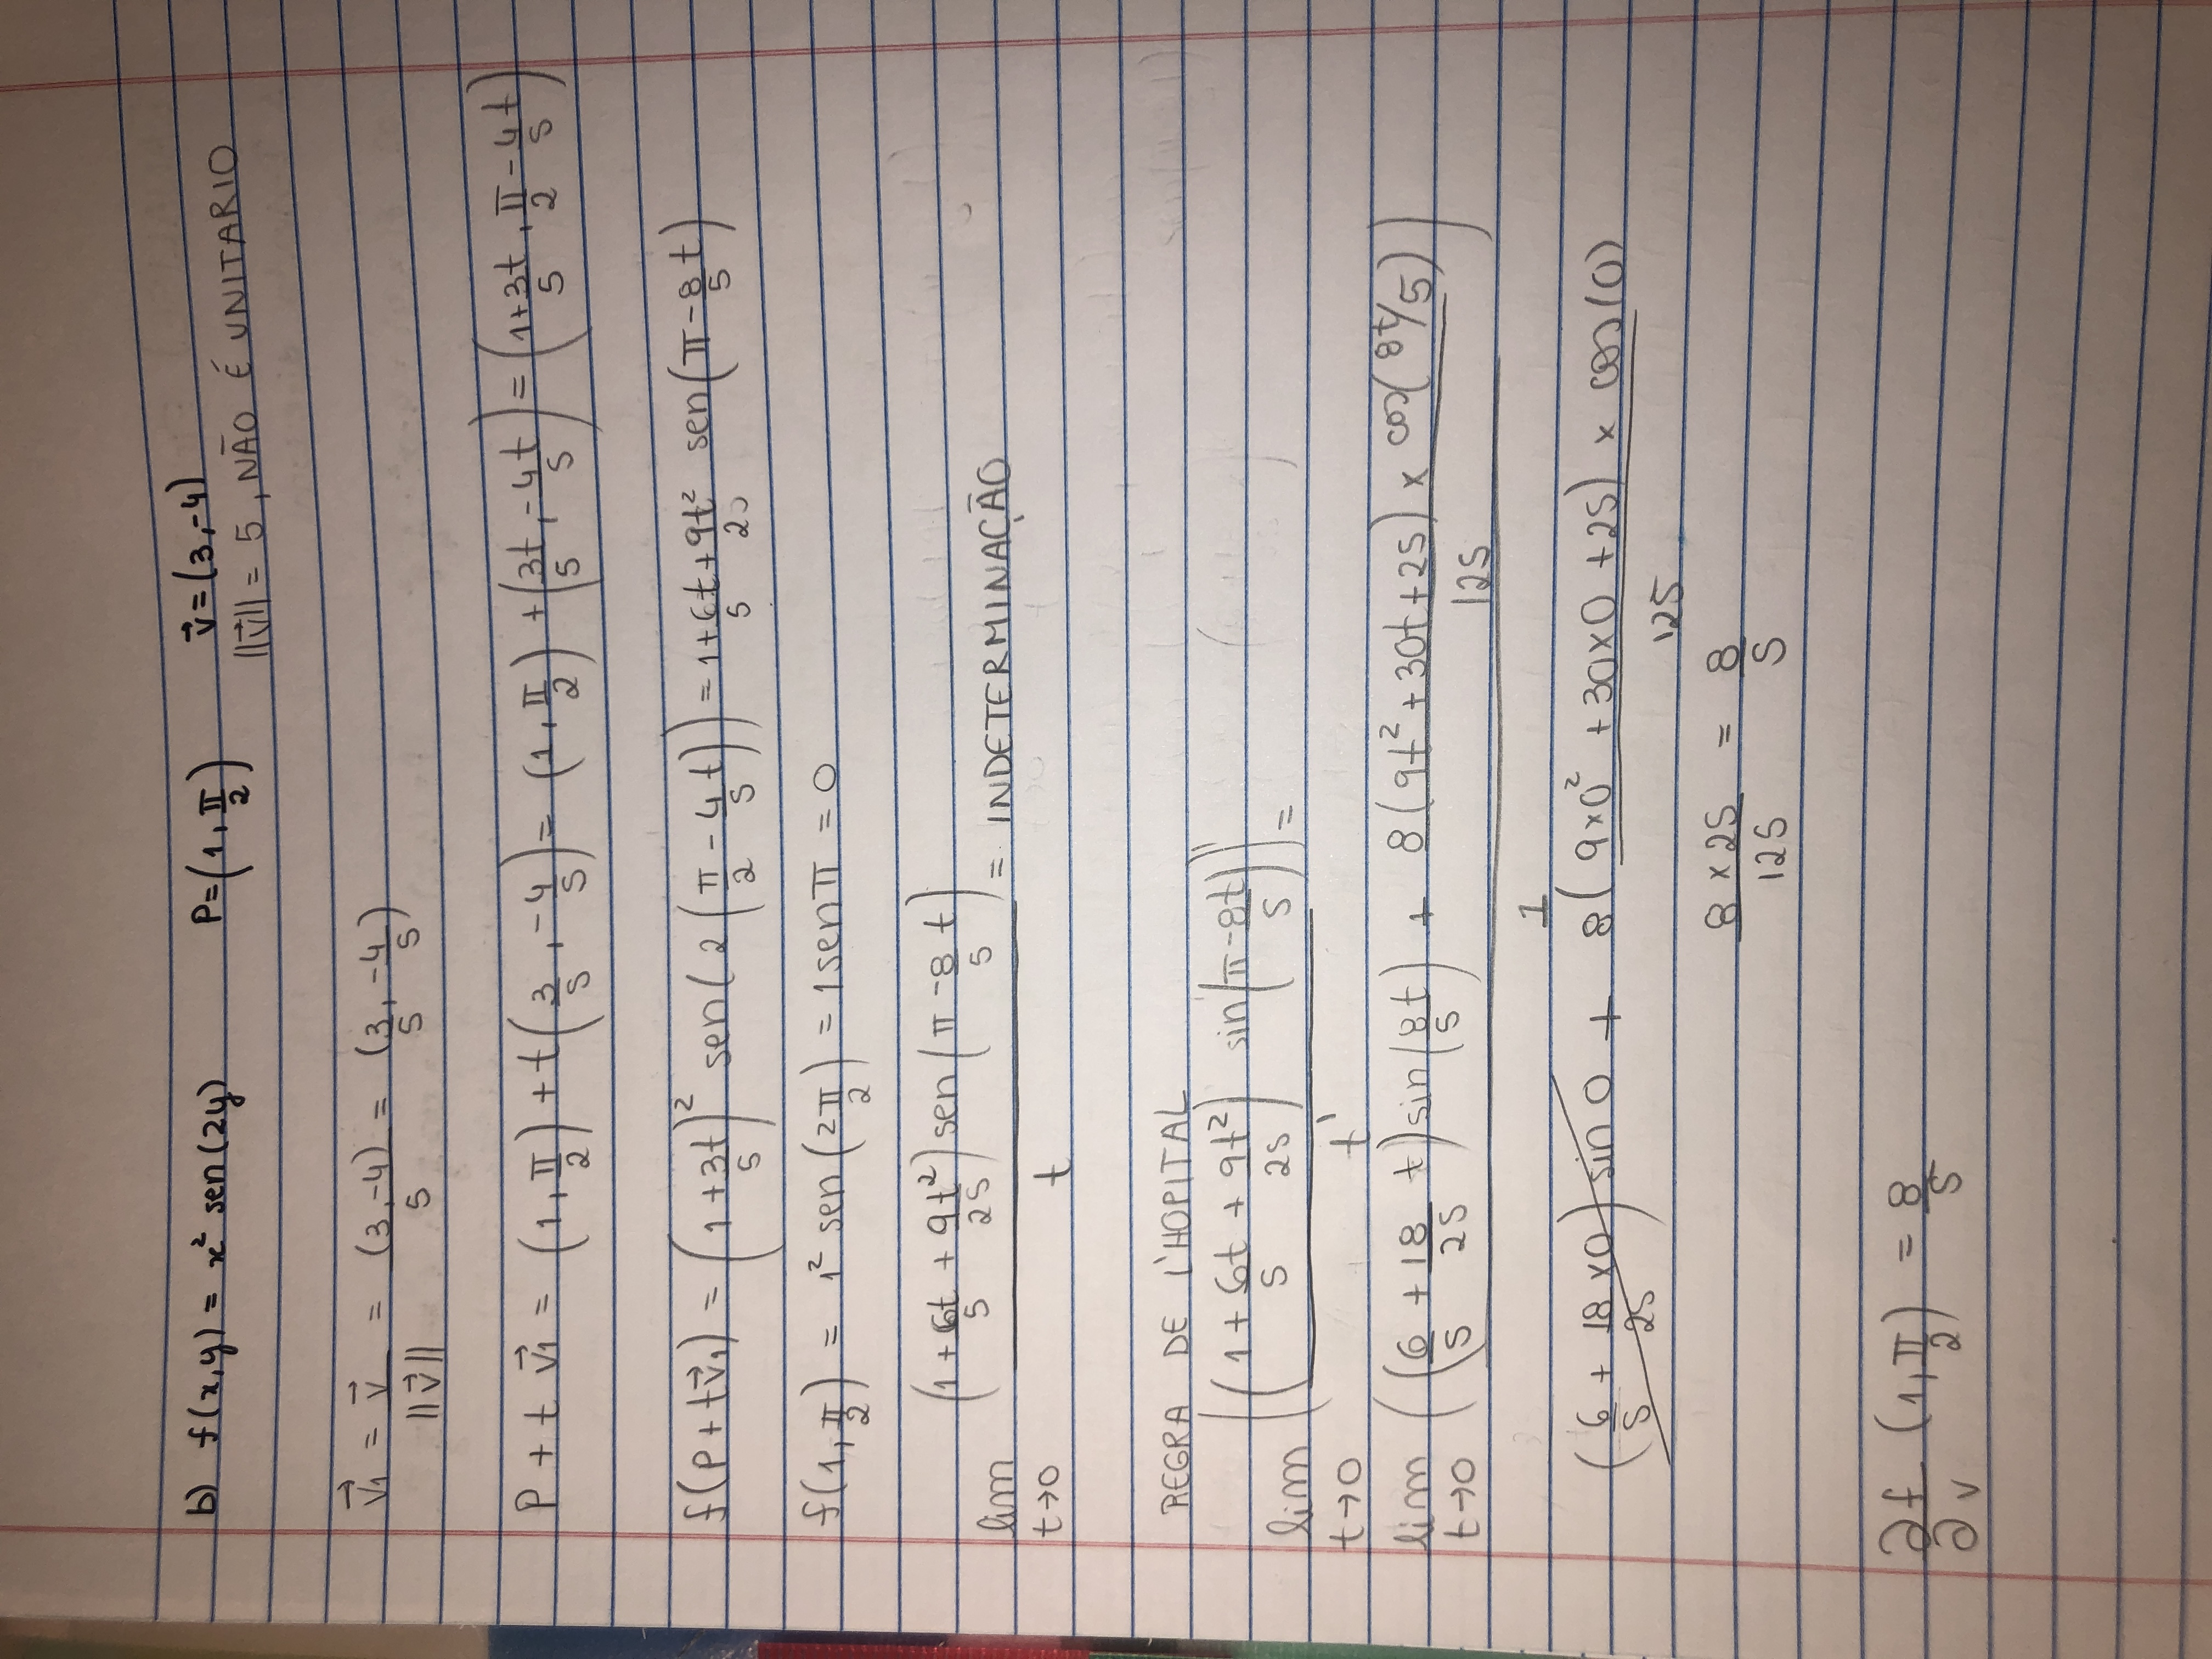 b) f(x,y) = x² sen(2y) P=(1, π/2) v⃗=(3,-4)
||v⃗|| = 5, NÃO É UNITARIO
v⃗₁ = v⃗/||v⃗|| = (3,-4)/5 = (3/5, -4/5)
P + t v⃗₁ = (1, π/2) + t(3/5, -4/5) = (1, π/2) + (3t/5, -4t/5) = (1+3t/5, π/2 - 4t/5)
f(P + tv⃗₁) = (1 + 3t/5)² sen(2(π/2 - 4t/5)) = 1+6t/5+9t²/25 sen(π-8/5 t)
f(1, π/2) = 1² sen(2π/2) = 1senπ = 0
lim t→0 (1 + 6t/5 + 9t²/25) sen(π - 8/5 t) / t = INDETERMINAÇÃO
REGRA DE L'HOPITAL
lim t→0 ((1 + 6t/5 + 9t²/25) sin(π-8t/5))' / t' =
lim t→0 ((6/5 + 18/25 t) sin(8t/5) + 8(9t²+30t+25) × cos(8t/5) / 125) / 1
(6/5 + 18×0/25) sin 0 + 8(9×0² +30×0 +25) × cos(0) / 125
8 × 25/125 = 8/5
∂f/∂v (1, π/2) = 8/5